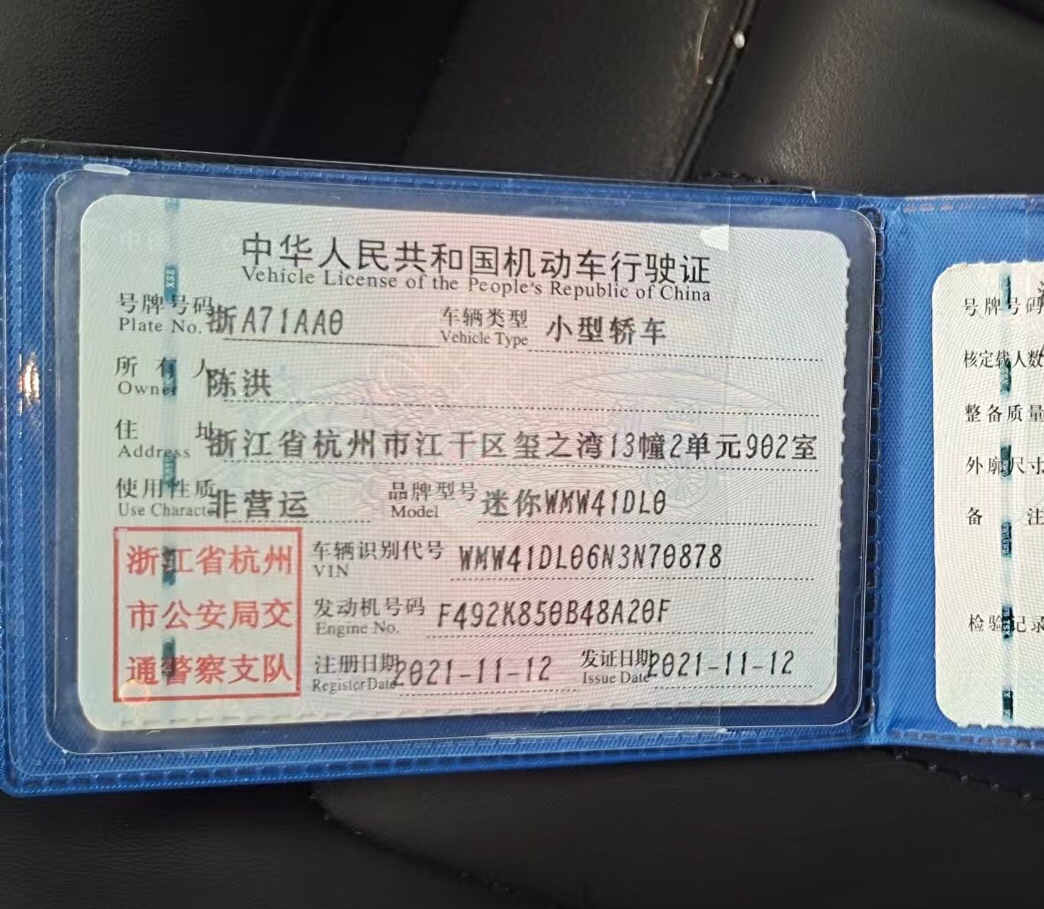 中华人民共和国机动车行驶证
Vehicle License of the People's Republic of China
号牌号码 浙A71AA0 车辆类型 小型轿车
Plate No. Vehicle Type
所有人 陈洪
Owner
住址 浙江省杭州市江干区玺之湾13幢2单元902室
Address
使用性质 非营运 品牌型号 迷你WMW41DL0
Use Character Model
浙江省杭州
市公安局交
通警察支队
车辆识别代号 WMW41DL06N3N70878
VIN
发动机号码 F492K850B48A20F
Engine No.
注册日期 2021-11-12 发证日期 2021-11-12
Register Date Issue Date
号牌号码
核定载人数
整备质量
外廓尺寸
备注
检验记录